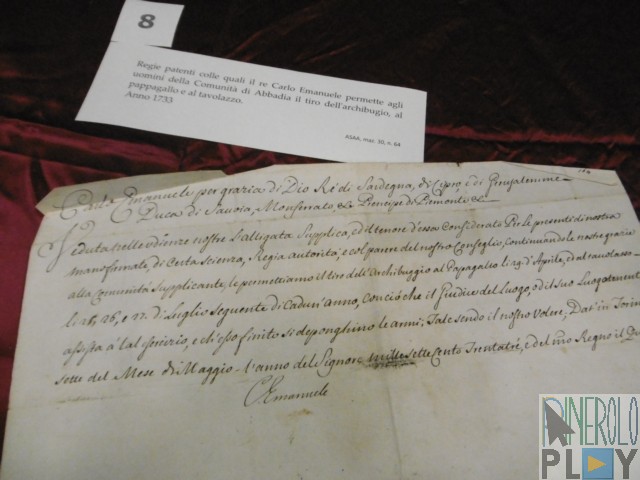 8
Regie patenti colle quali il re Carlo Emanuele permette agli
uomini della Comunità di Abbadia il tiro dell'archibugio, al
pappagallo e al tavolazzo.
Anno 1733
ASAA, maz. 10, n. 64
Carlo Emanuele per grazia di Dio Rè di Sardegna, di Cipro, e di Gerusalemme
Duca di Savoia, Monferrato, &c Principe di Piemonte &c
Veduta nelle udienze nostre l'alligata Supplica, ed il tenore d'essa Considerato Per le presenti di nostra
man firmate, di Certa scienza, Regia autorità, e col parere del nostro Conseglio, Continuando le nostre grazie
alla Comunità Supplicante, le permettiamo il tiro dell'Archibuggio al Papagallo li 29 d'Aprile, ed al tavolasso
li 25, 26, e 27 di Luglio seguente di Cadun'anno, Con ciò che il Giudice del Luogo, o di lui Luogotenente
assista à tal servizio, e ch'esso finito si deponghino le armi; Tale sendo il nostro Volere, Dat' in Torino
sette del Mese di Maggio l'anno del Signore mille sette Cento Trentatrè, e del nro Regno il
CEmanuele
PINEROLO
PLAY